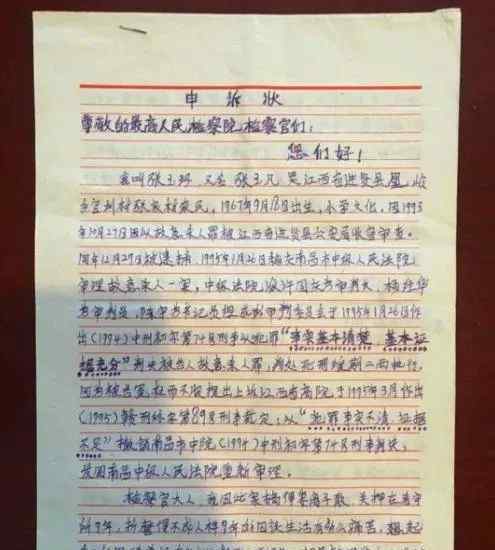 申诉状
尊敬的最高人民检察院检察官们：
您们好！
我叫张玉环 又名 张玉凡 是江西省进贤县凰岭
乡宜利村张家村农民，1967年9月18日出生，小学文化，因1993
年10月27日因以故意杀人罪被江西省进贤县公安局收容审查。
同年12月29日被逮捕，1995年1月26日被南昌市中级人民法院
审理故意杀人一案，中级法院 为审判长，
为审判员， 书记员 审判委员会于1995年1月26日作
出(1994)中刑初字第74号刑事以犯罪“事实基本清楚，基本证
据充分”判决被告人故意杀人罪，判处死刑缓期二两执行，
因为被告冤，枉而不服提出上诉江西省高院于1995年3月作出
(1995)赣刑终字第89号刑事裁定，以“犯罪事实不清，证据
不足”撤销南昌市中院(1994)中刑初字第74号刑事判决，
发回南昌中级人民法院重新审理。
检察官大人，我因此案搞得妻离子散，关押在看守
所9年，折磨得不成人样9年 生活有多么痛苦，想起